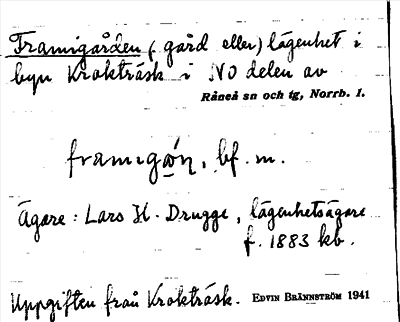 Framigården (gård eller) lägenhet i
byn Krokträsk i NO delen av
Råneå sn och tg, Norrb. l.
framigó̱n, bf. m.
Ägare: Lars H. Drugge, lägenhetsägare
f. 1883 kb.
Uppgiften från Krokträsk. EDVIN BRÄNNSTRÖM 1941